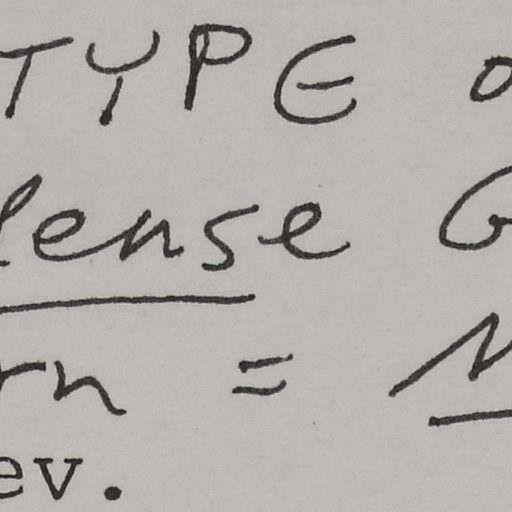 TYPE o
lense G
rn = M
ev.